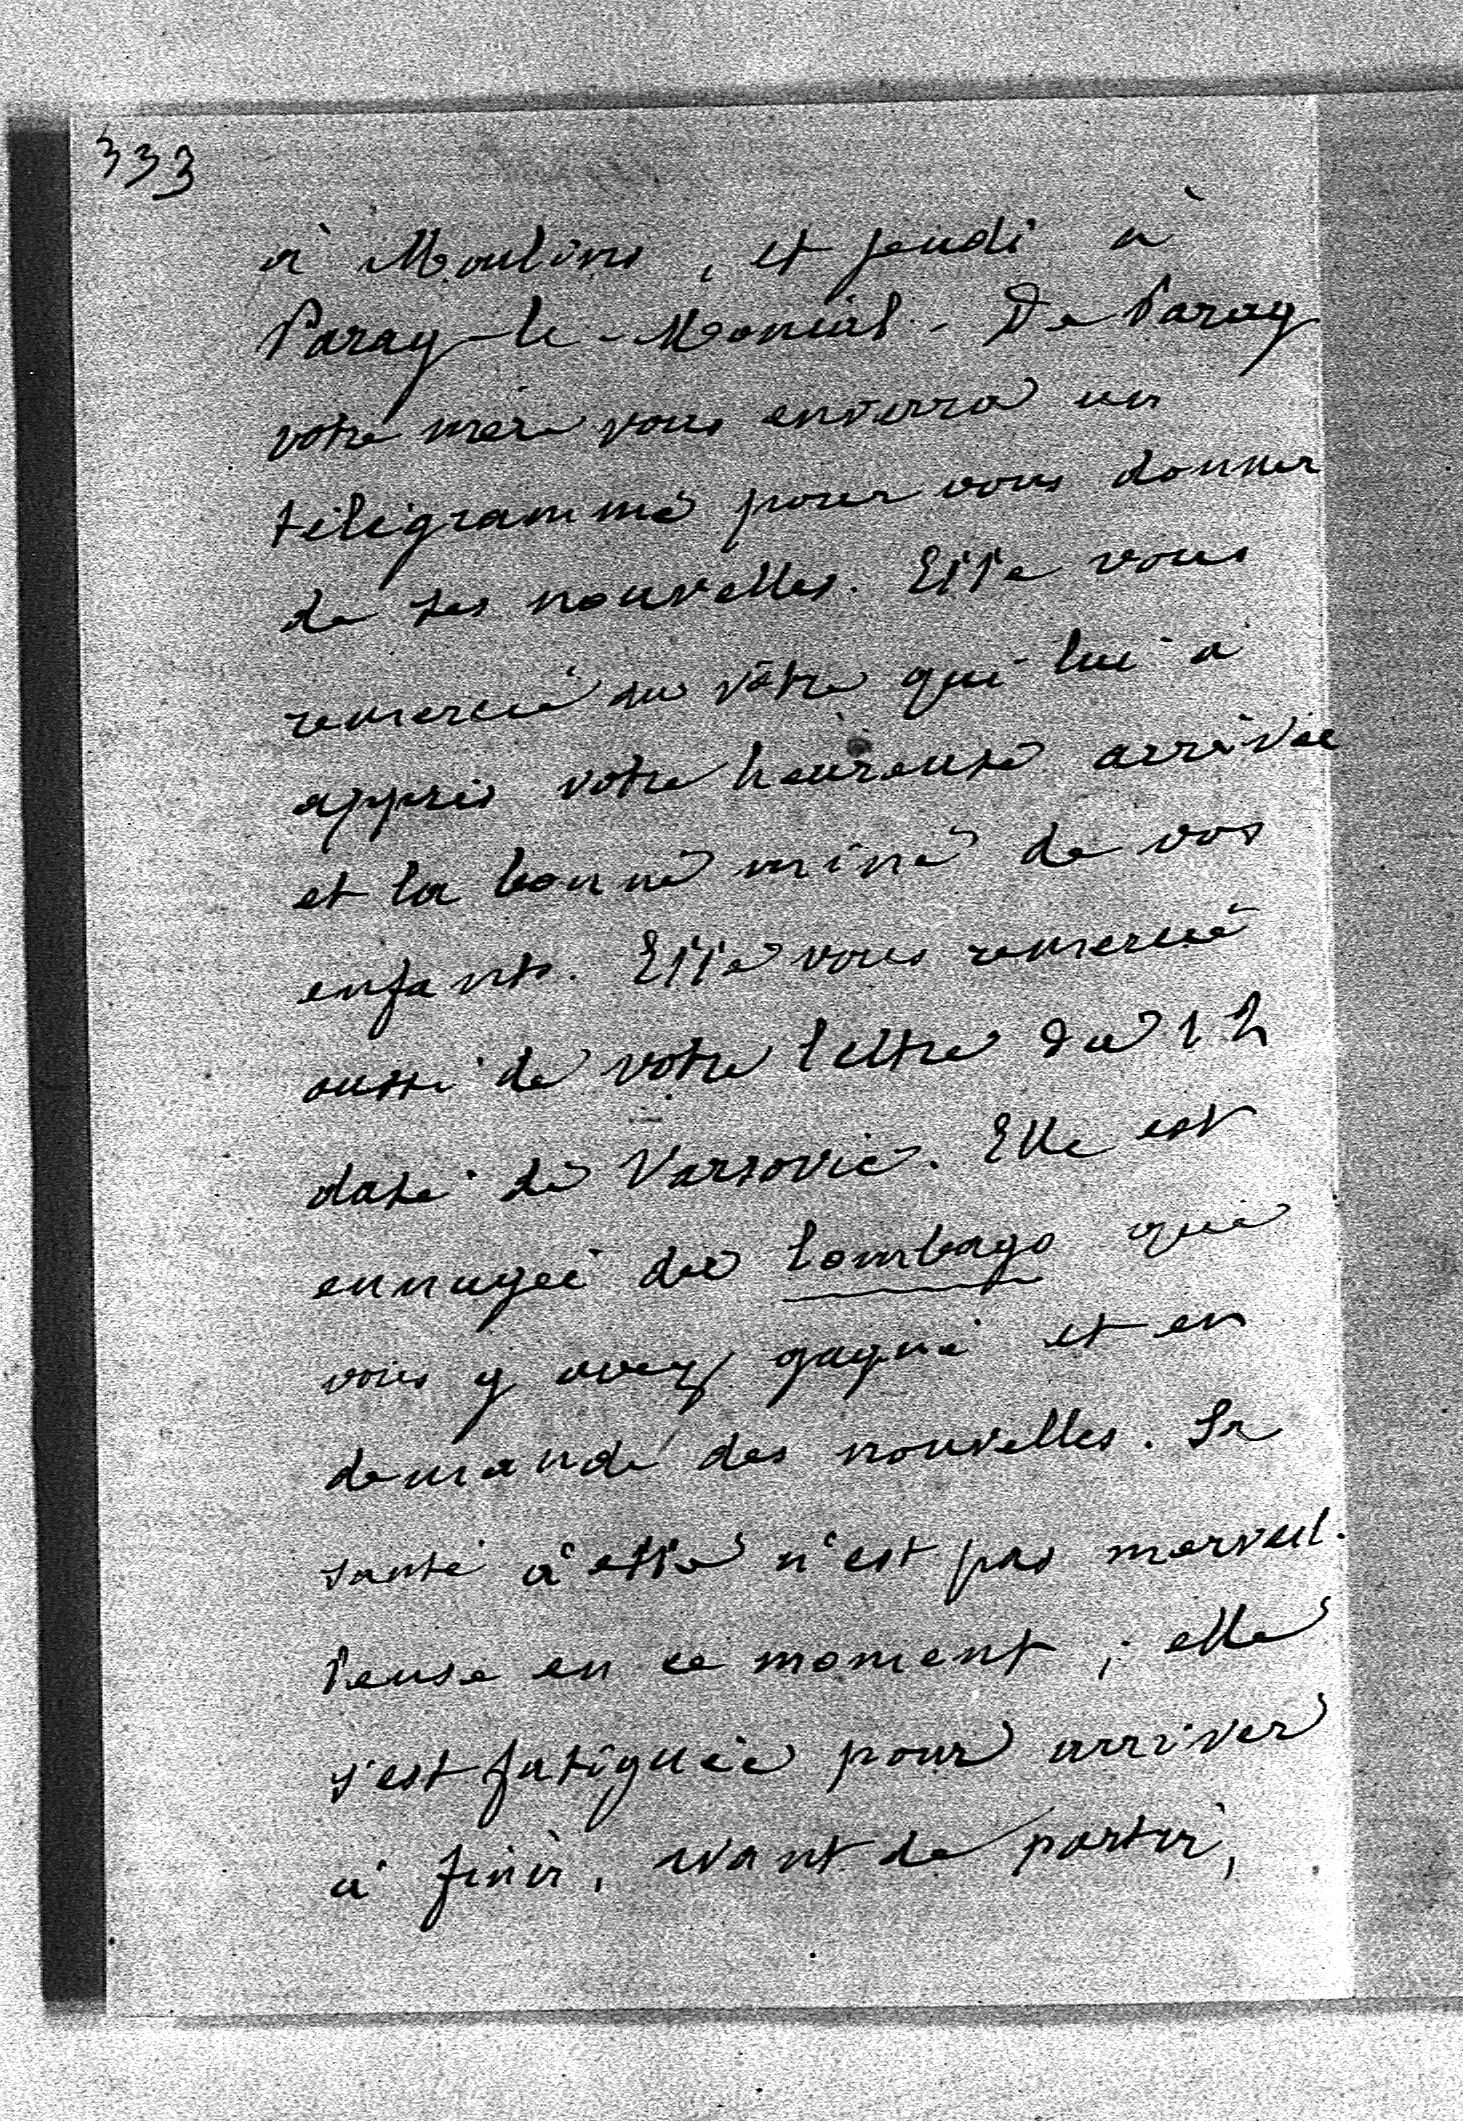 333
à Moulins, et jeudi à
Paray-le-Monial. De Paray
votre mère vous enverra un
télégramme pour vous donner
de ses nouvelles. Elle vous
remercie du vôtre qui lui a
appris votre heureuse arrivée
et la bonne mine de vos
enfants. Elle vous remercie
aussi de votre lettre du 12
datée de Varsovie. Elle est
ennuyée du lombago que
vous y avez gagné et en
demande des nouvelles. Sa
santé à elle n'est pas merveil-
leuse en ce moment ; elle
s'est fatiguée pour arriver
à finir, avant de partir,